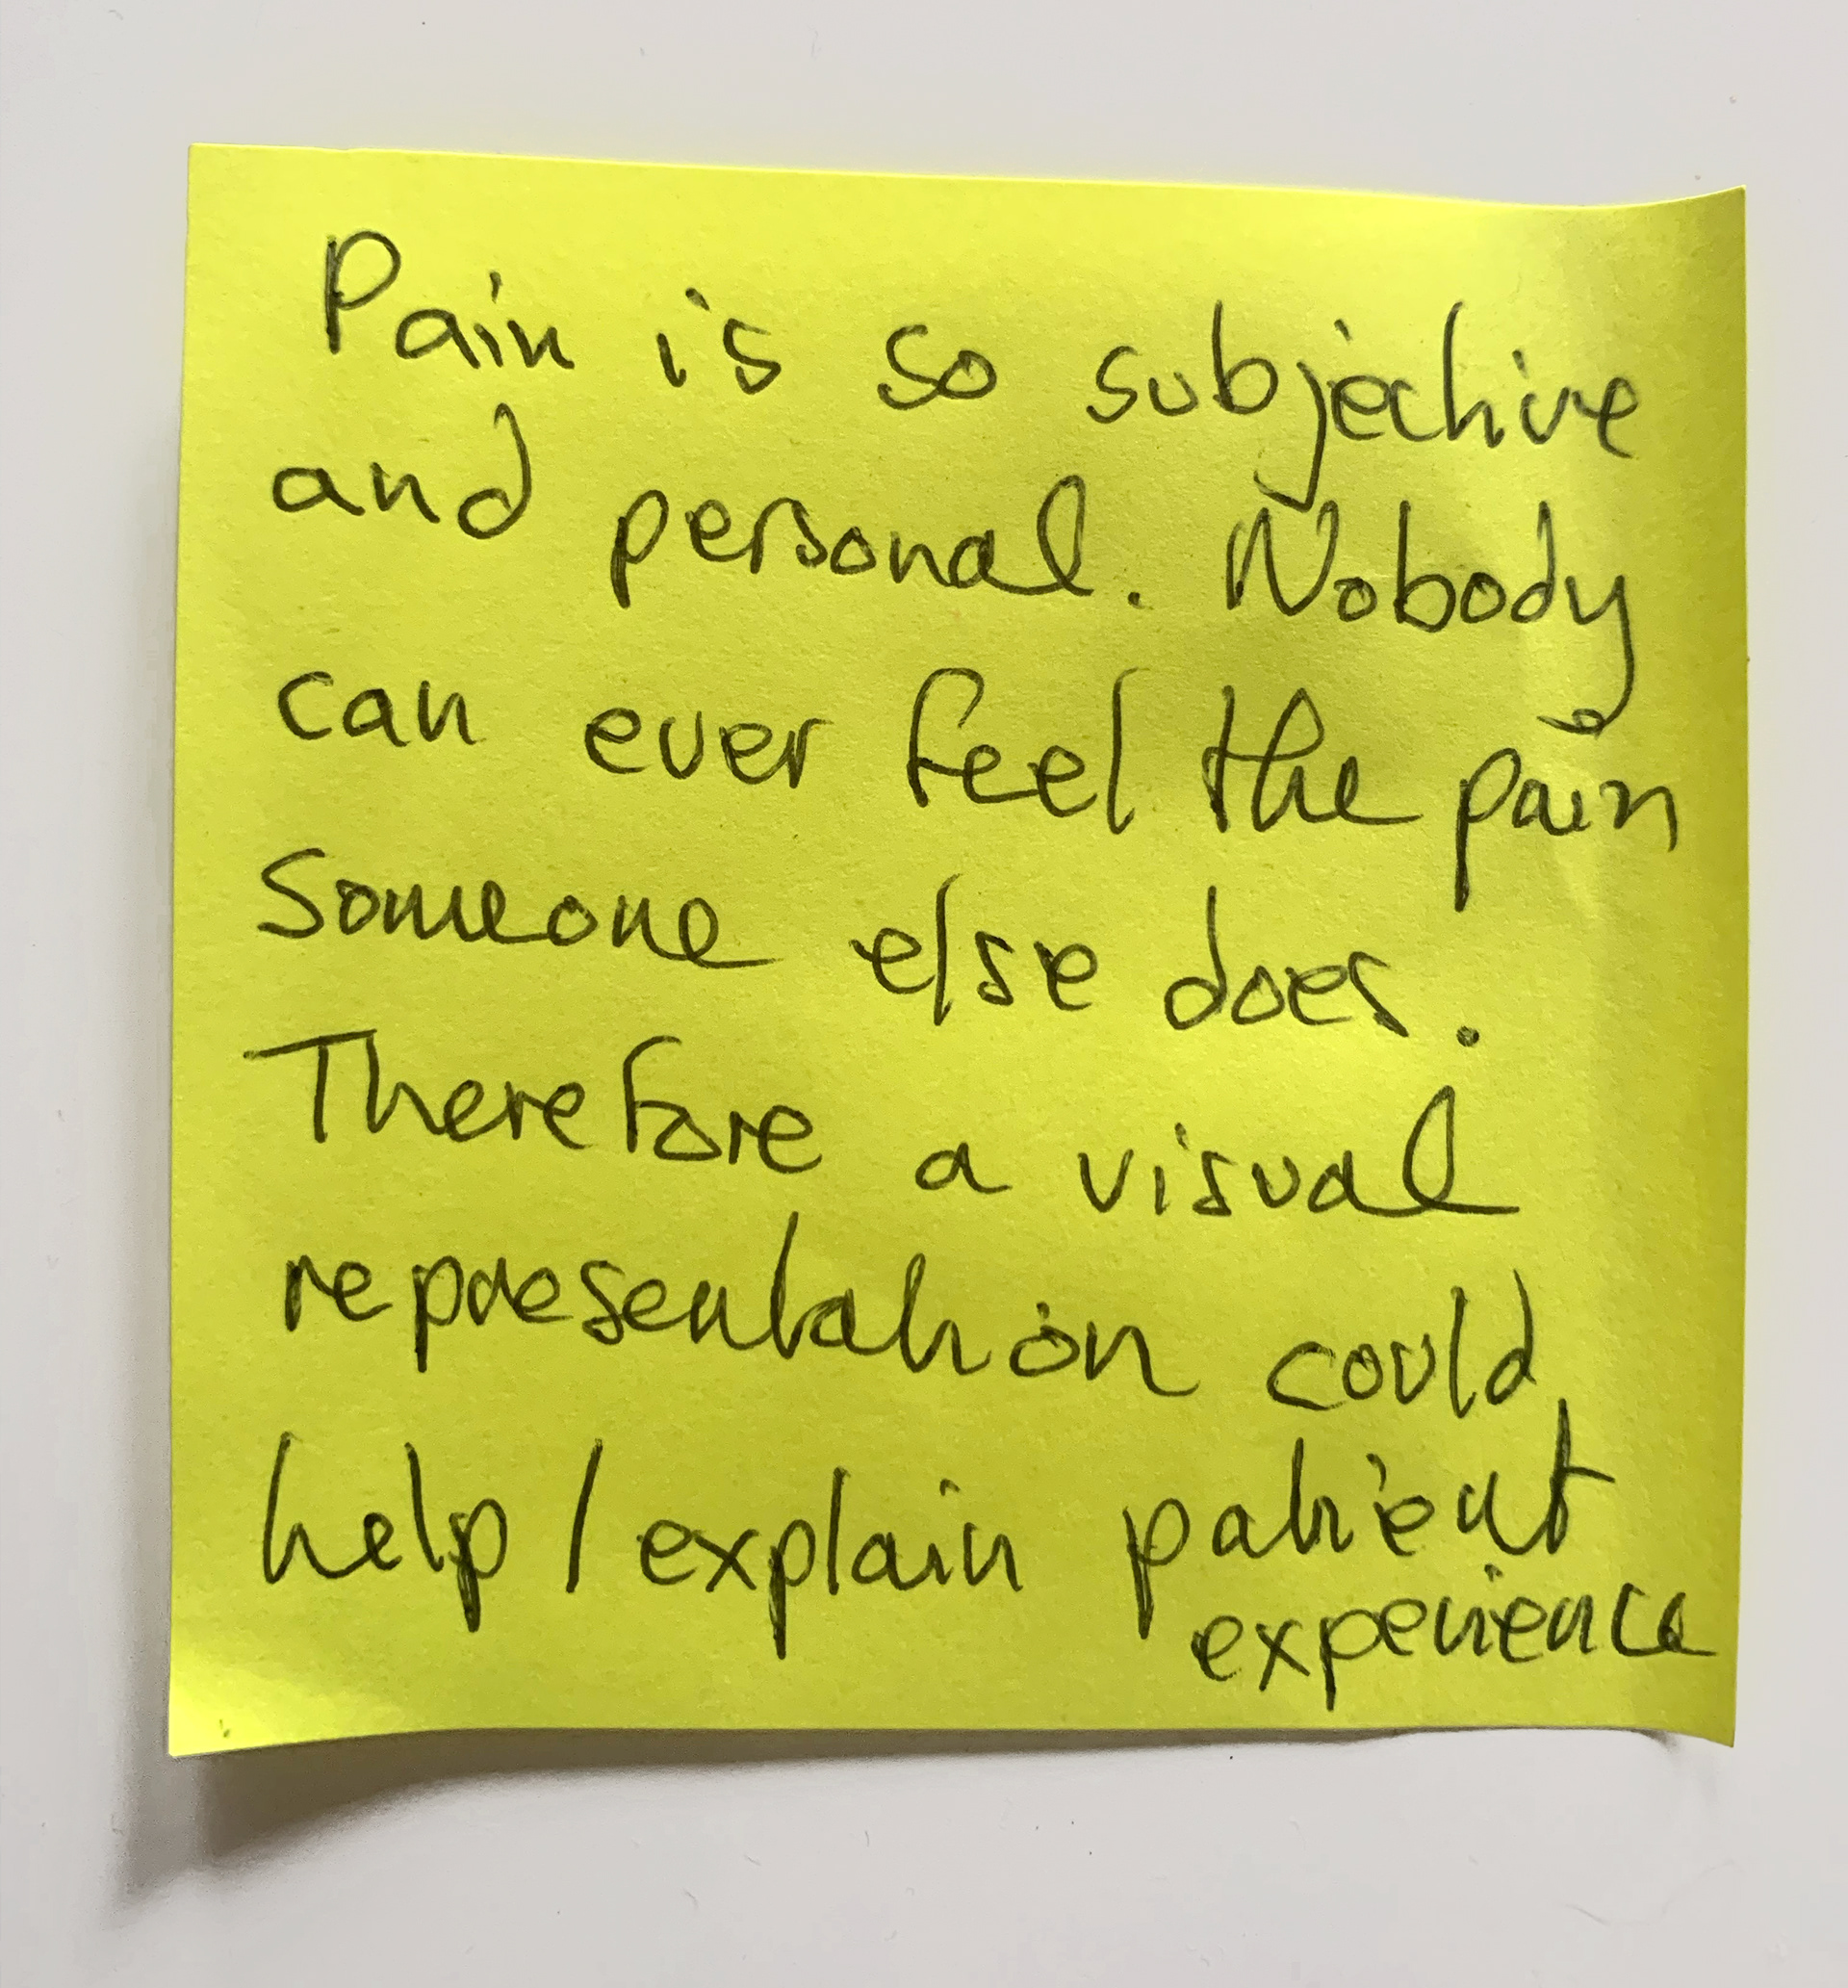 Pain is so subjective
and personal. Nobody
can ever feel the pain
someone else does.
Therefore a visual
representation could
help / explain patient
experience